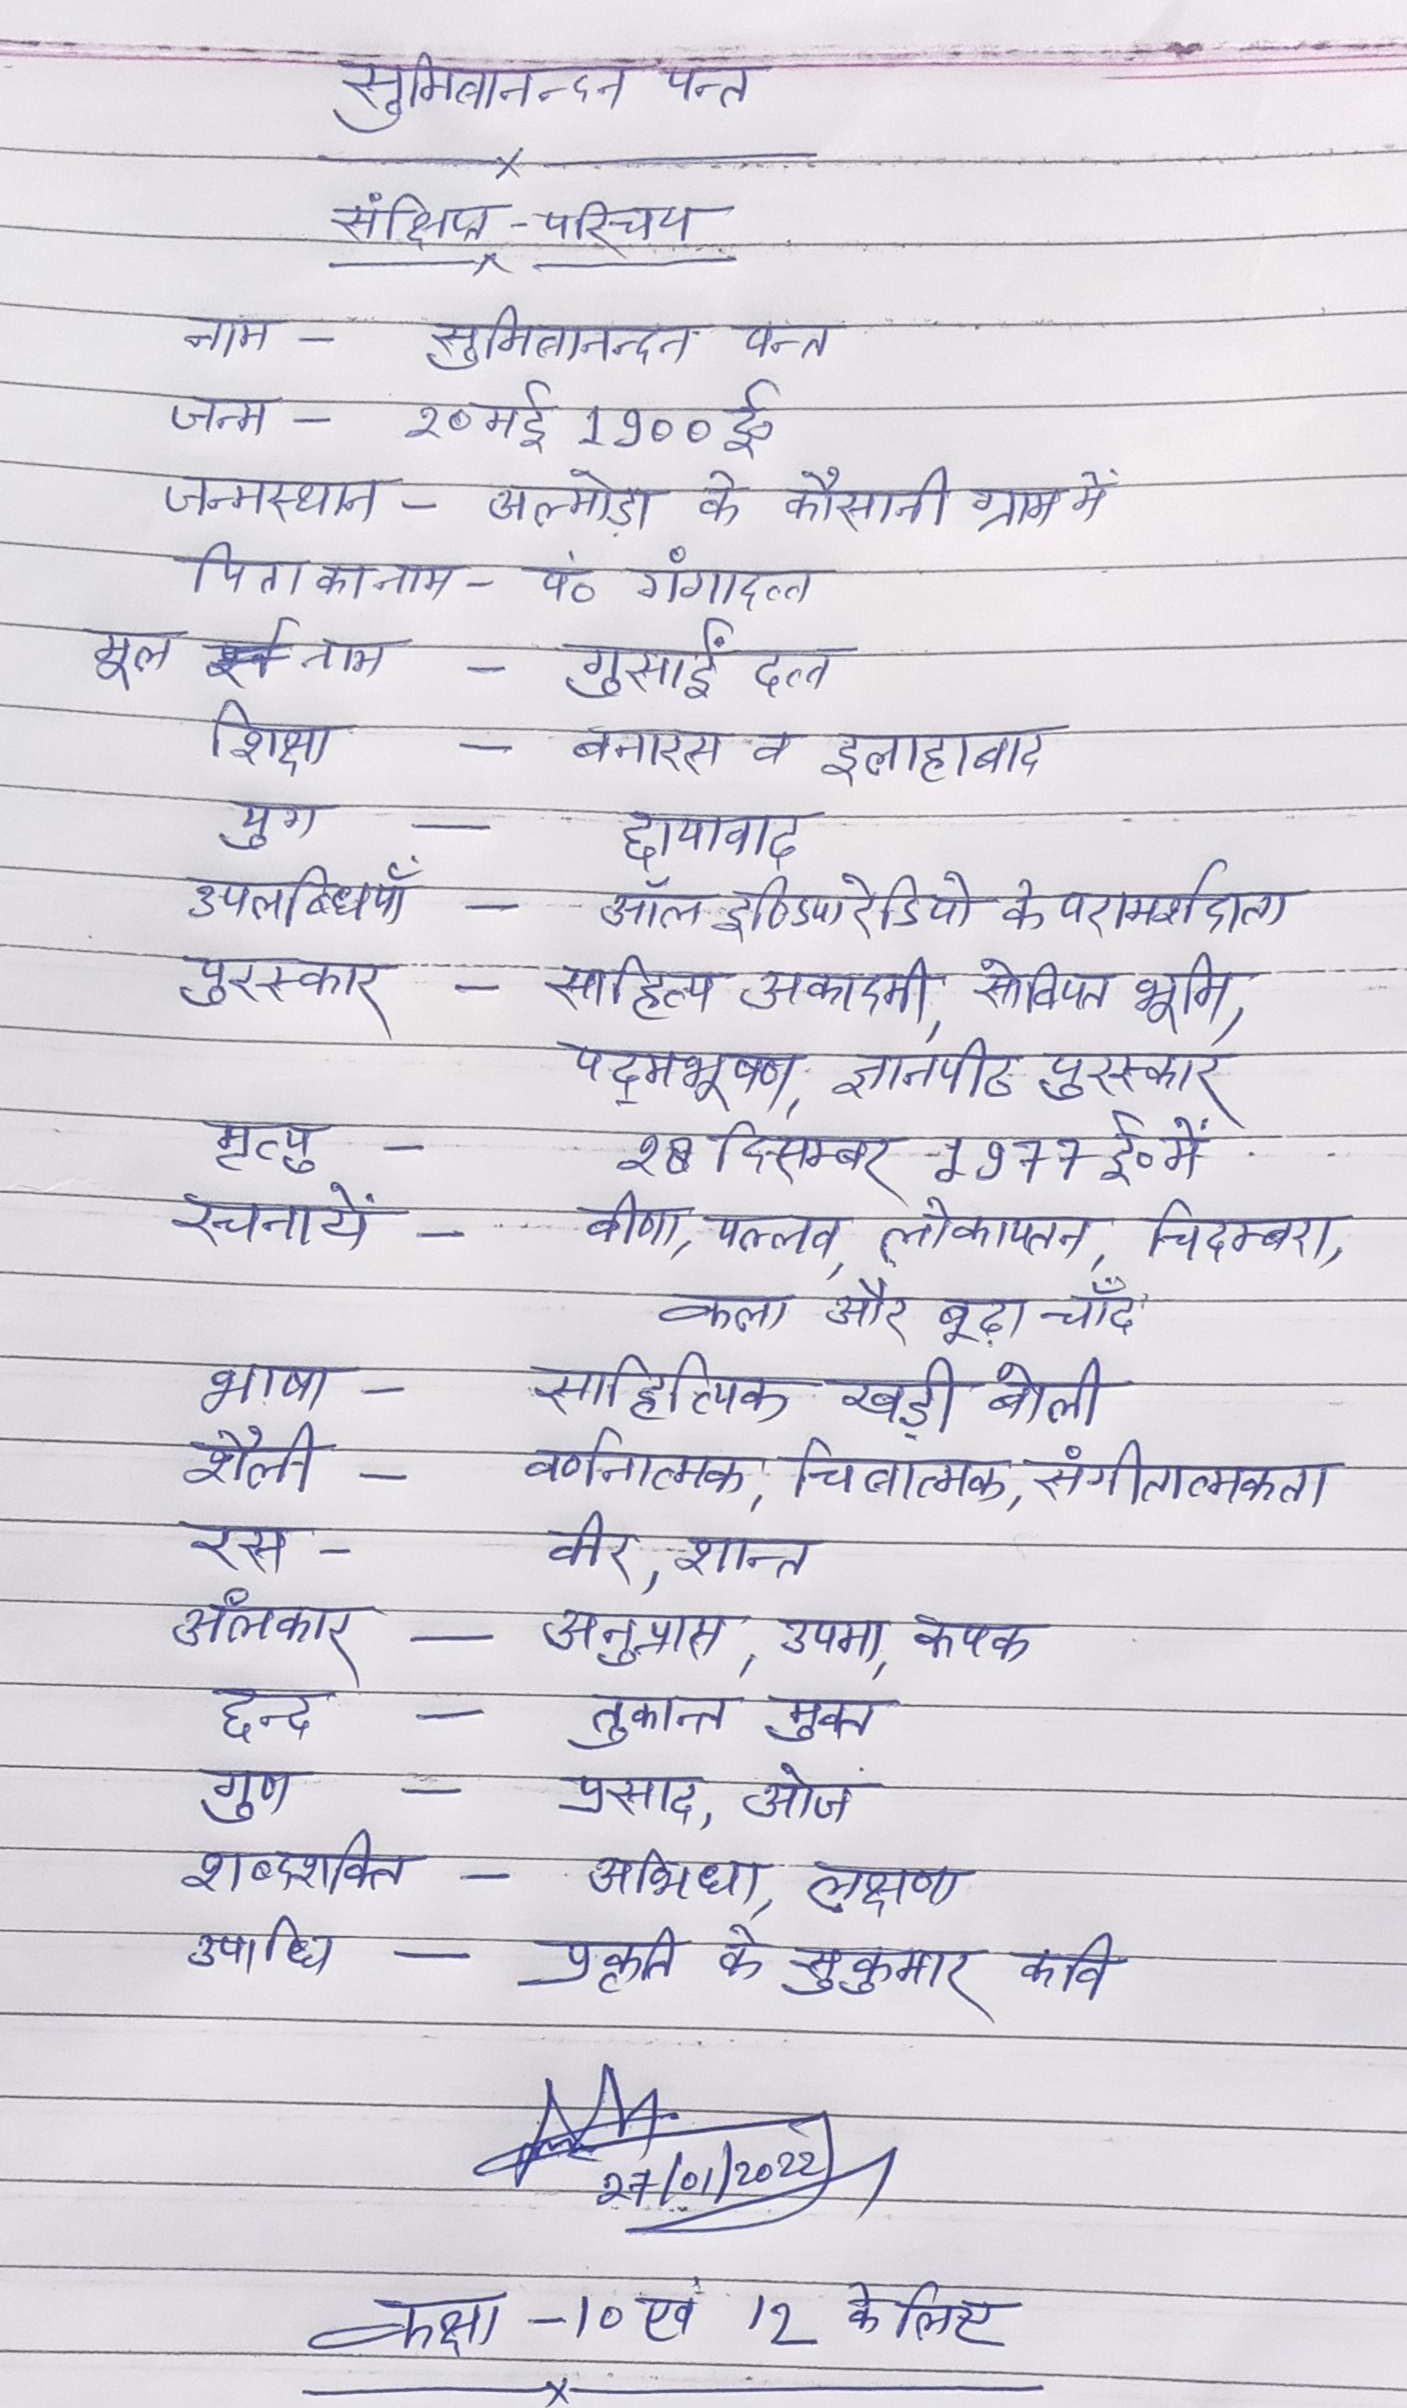 सुमित्रानन्दन पन्त
संक्षिप्त - परिचय
नाम - सुमित्रानन्दन पन्त
जन्म - २० मई 1900 ई०
जन्मस्थान - अल्मोड़ा के कौसानी ग्राम में
पिता का नाम - पं० गंगादत्त
मूल नाम - गुसाईं दत्त
शिक्षा - बनारस व इलाहाबाद
युग - छायावाद
उपलब्धियाँ - ऑल इण्डिया रेडियो के परामर्शदाता
पुरस्कार - साहित्य अकादमी, सोवियत भूमि,
पद्मभूषण, ज्ञानपीठ पुरस्कार
मृत्यु - २8 दिसम्बर 1977 ई० में
रचनायें - वीणा, पल्लव, लोकायतन, चिदम्बरा,
कला और बूढ़ा चाँद
भाषा - साहित्यिक खड़ी बोली
शैली - वर्णनात्मक, चित्रात्मक, संगीतात्मकता
रस - वीर, शान्त
अंलकार - अनुप्रास, उपमा, रूपक
छन्द - तुकान्त मुक्त
गुण - प्रसाद, ओज
शब्दशक्ति - अभिधा, लक्षणा
उपाधि - प्रकृति के सुकुमार कवि
27/01/2022
कक्षा - 10 एवं 12 के लिए